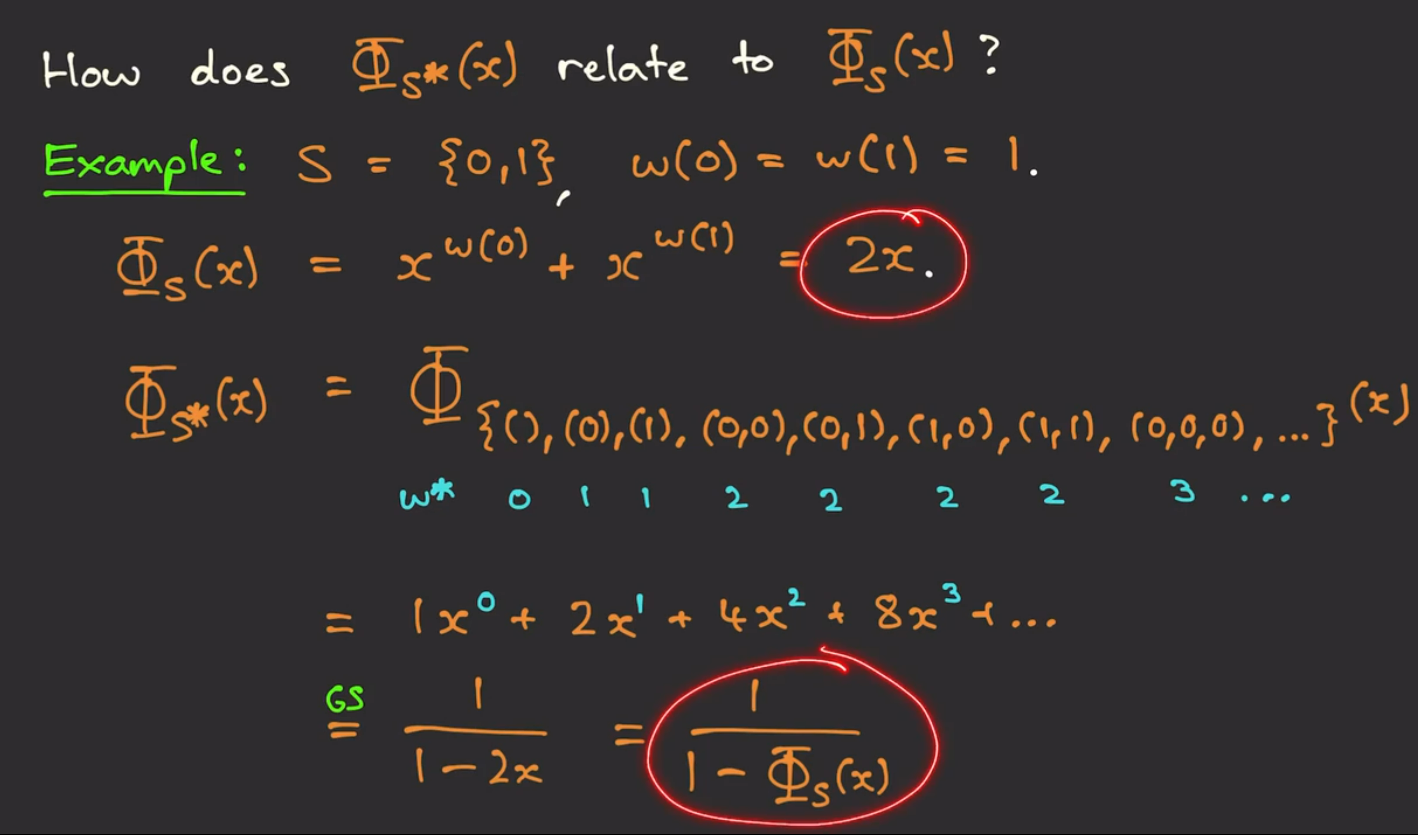 How does Φ_S*(x) relate to Φ_S(x) ?
Example: S = {0,1}, w(0) = w(1) = 1.
Φ_S(x) = x^w(0) + x^w(1) = 2x.
Φ_S*(x) = Φ_{(), (0), (1), (0,0), (0,1), (1,0), (1,1), (0,0,0), ...}(x)
w* 0 1 1 2 2 2 2 3 ...
= 1x^0 + 2x^1 + 4x^2 + 8x^3 + ...
GS = 1/(1-2x) = 1/(1-Φ_S(x))